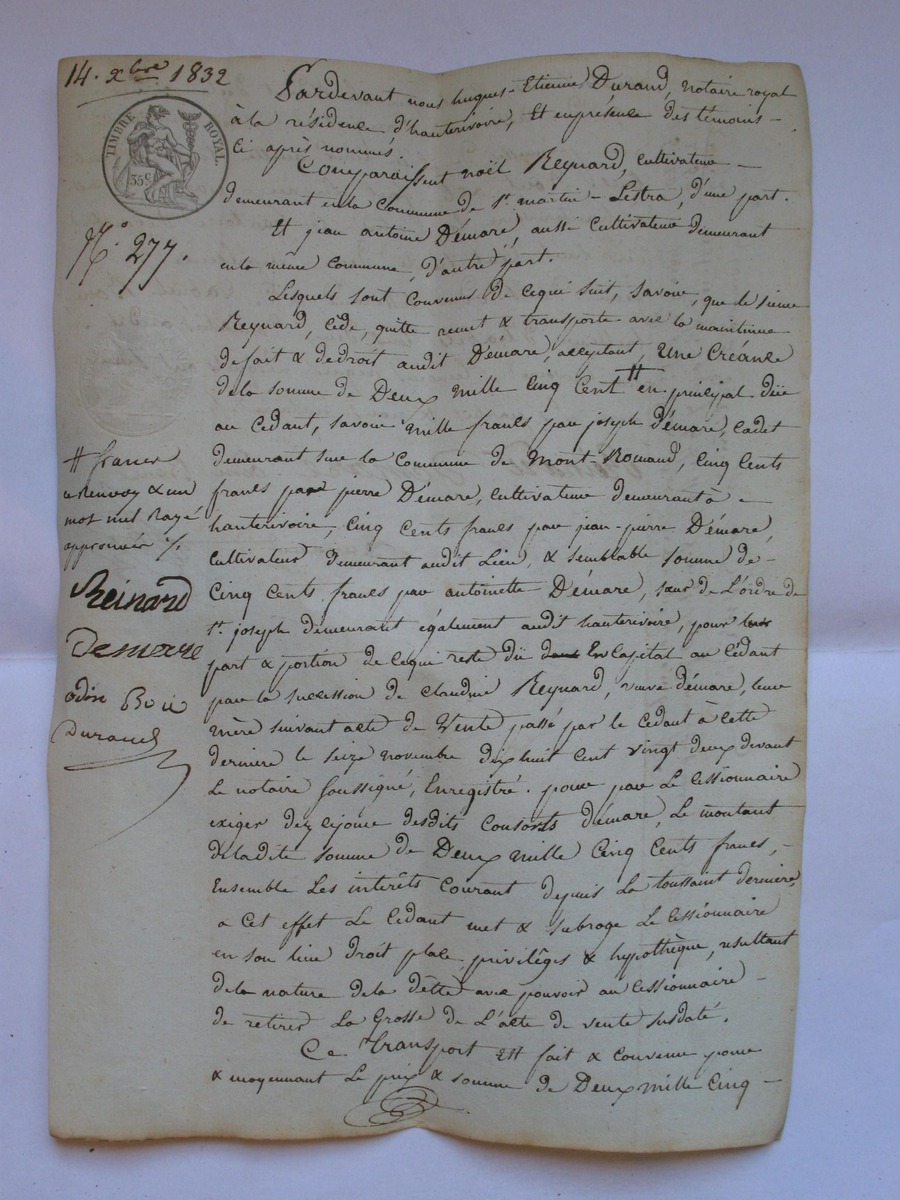 14. xbre 1832
TIMBRE ROYAL.
35 c
N.o 277.
Pardevant nous hugues-Etienne Durand, notaire royal
à la résidence d'hauterivoire, Et en présence des témoins-
Ci après nommés.
Comparaissent noël Reynard, cultivateur-
demeurant en la Commune de St. martin-Lestra, d'une part.
Et jean antoine Démare, aussi Cultivateur demeurant
en la même Commune, d'autre part.
Lesquels sont Convenus de cequi suit, savoir, que le sieur
Reynard, Cède, quitte remet & transporte avec la maintenue
de fait & de droit audit Démare, acceptant, Une Créance
de la somme de Deux mille Cinq Cent # en principal düe
au Cedant, savoir mille francs par joseph Démare, Cadet
demeurant sur la Commune de Mont-Romand, Cinq Cents
francs par pierre Démare, Cultivateur demeurant à -
hauterivoire, Cinq Cents francs par jean-pierre Démare,
Cultivateur demeurant audit Lieu, & semblable somme de-
Cinq Cents francs par antoinette Démare, sœur de L'ordre de
St. joseph demeurant également audit hauterivoire, pour leur
part & portion de Cequi reste dü dans En Capital au Cédant
par la succession de Claudine Reynard, veuve démare, leur
mère suivant acte de Vente passé par le Cedant à Cette
derniere le seize novembre dix huit Cent vingt deux devant
Le notaire soussigné, Enregistré. pour par Le Cessionnaire
exiger dez cejour desdits Consorts démare, Le montant
de ladite somme de Deux mille Cinq Cents francs,-
Ensemble Les intérêts Courant depuis La toussaint derniere,
a Cet effet Le Cedant met & subroge Le Cessionnaire
en son lieu droit place, privilèges & hypothèque, resultant
de la nature de la dette avec pouvoir au Cessionnaire-
de retirer La Grosse de L'acte de vente susdaté.
Ce transport Est fait & Convenu pour
& moyennant Le prix & somme de Deux mille Cinq-
# francs
un renvoy & un
mot nul rayé
approuvés ./.
Reinard
Demare
odin
Durand